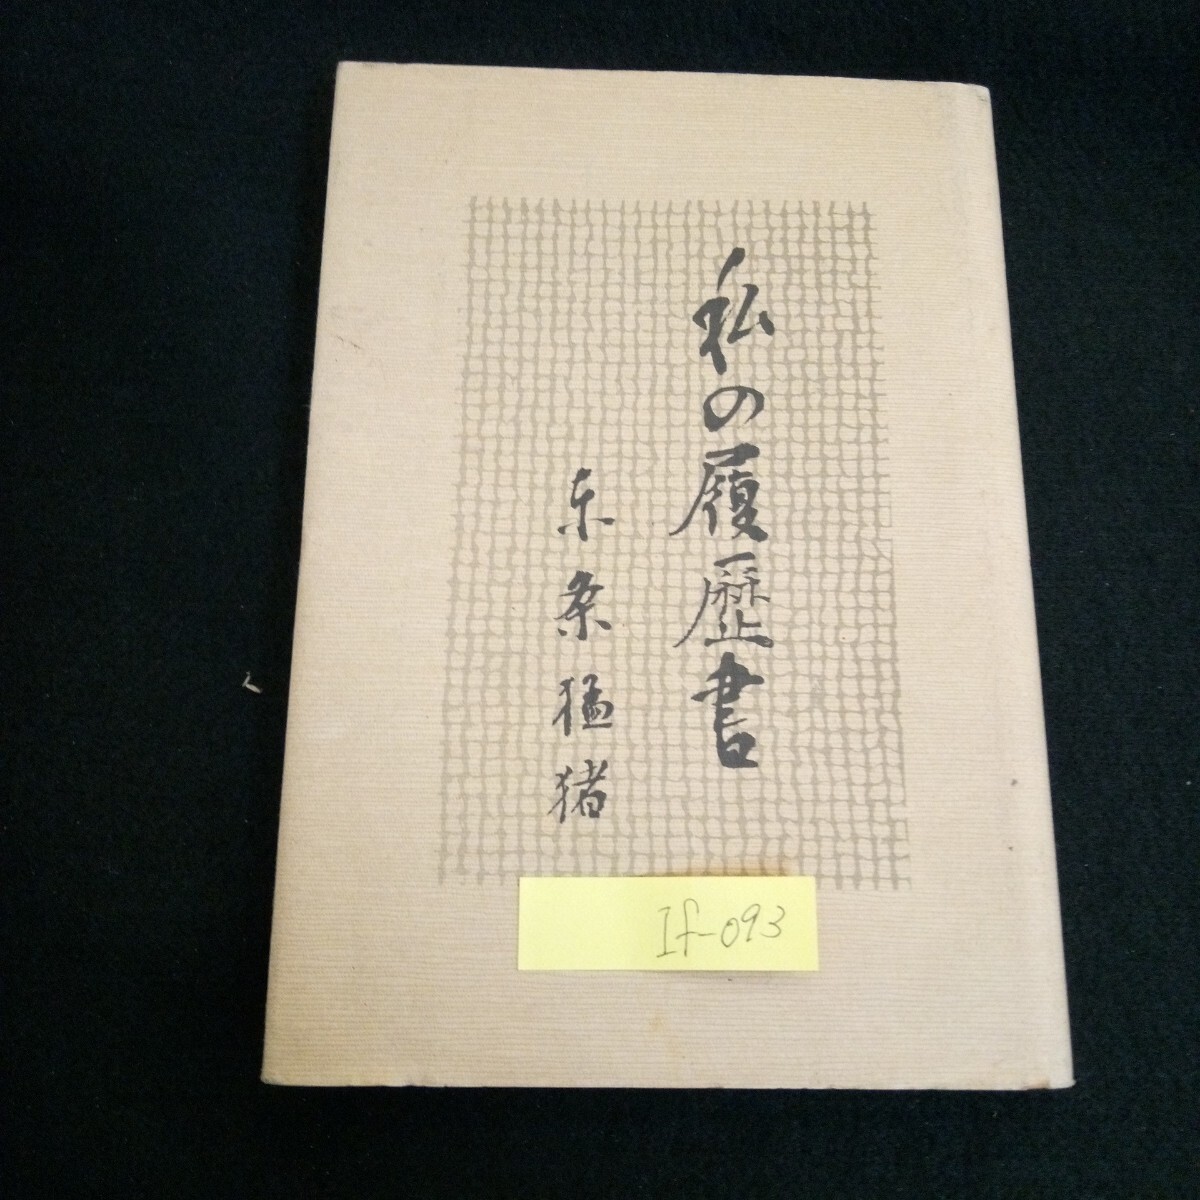 私の履歴書
東条猛猪
If-093